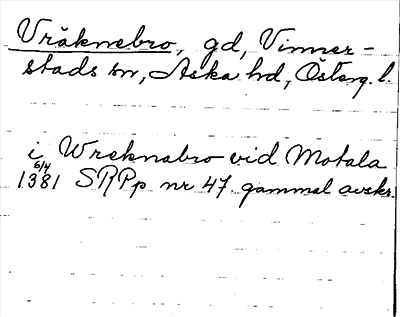 Vräknebro, gd, Vinner-
stads sn, Aska hd, Österg. l.
i Wreknabro vid Motala
6/4
1381 SRPp nr 47. gammal avskr.